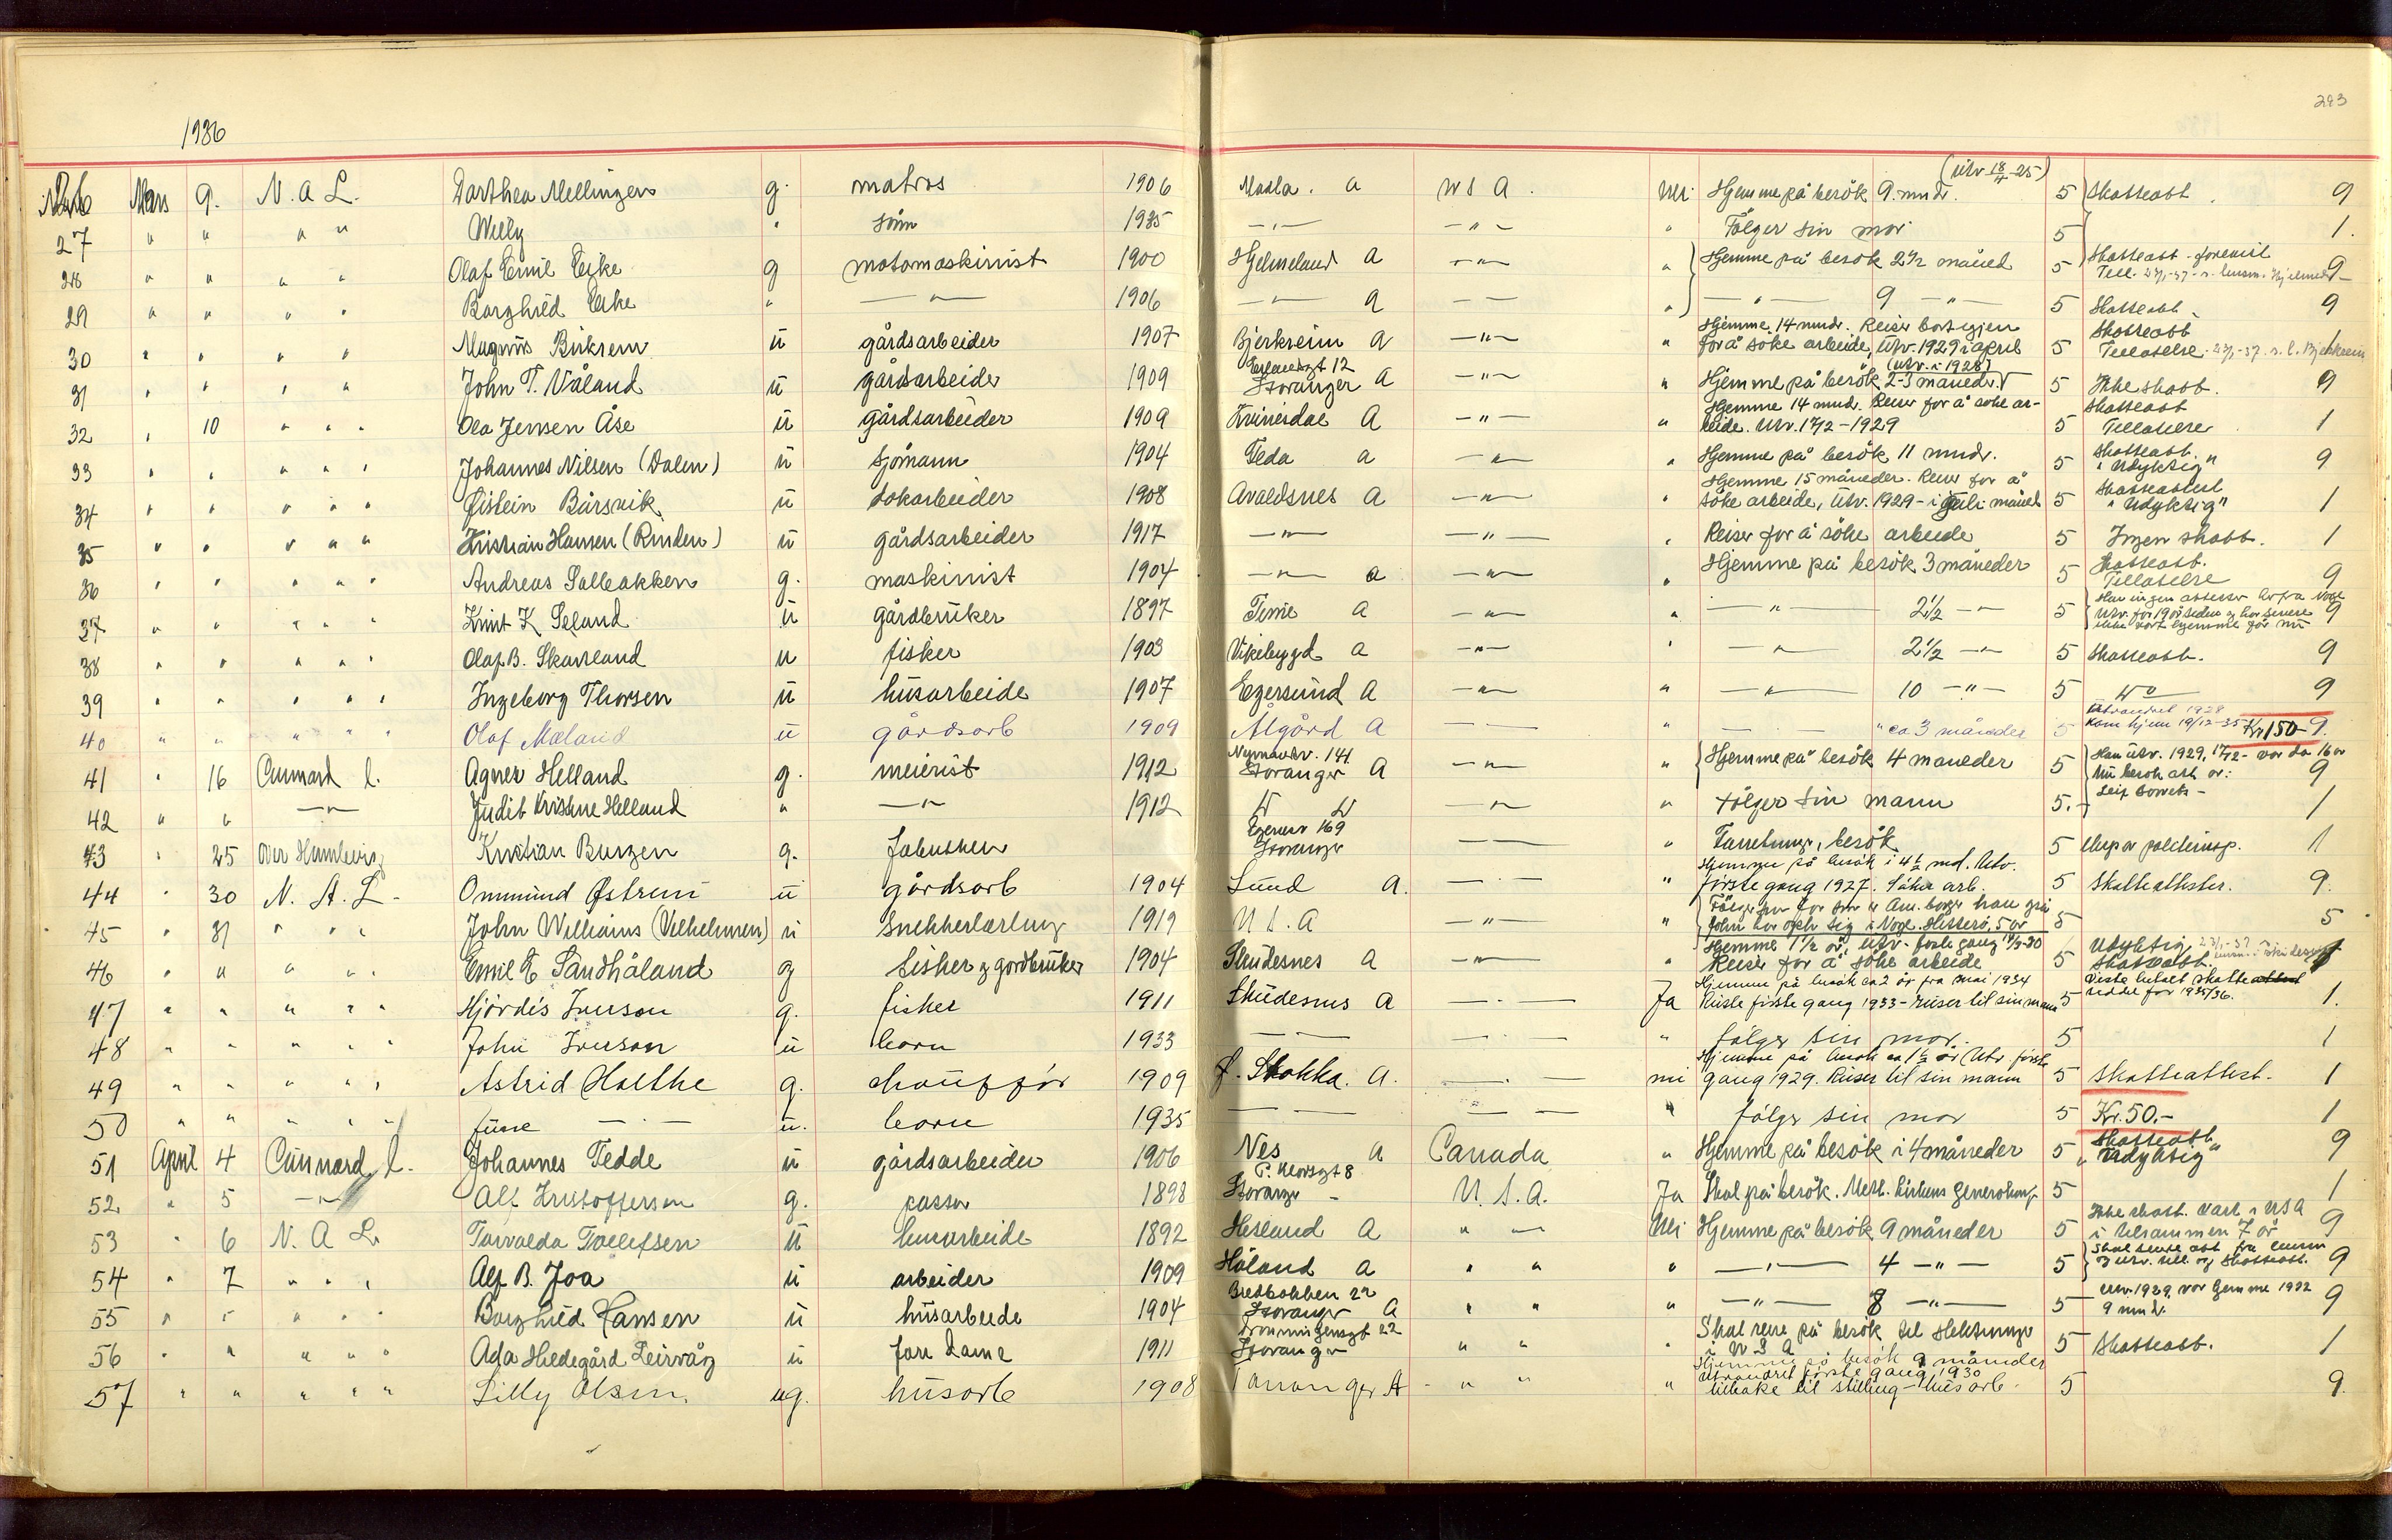 293
1936
Mars 9. N. A. L. Dorthea Mellingen g. matros 1906 Madla. a U S A. Nei Hjemme på besök 9. mndr. (Utv 18/4-25) 5 Skatteatt. 9
27 " " " " Willy " sönn 1935 — " — — " — " Fölger sin mor 5 1.
28 " " " " Olaf Emil Eike g motormaskinist 1900 Hjelmeland a — " — " Hjemme på besök 2 1/2 måned 5 Skatteatt. forevist 9
29 " " " " Borghild Eike " — " — 1906 — " — a — — " — " — 9 — " — 5 Skatteatt. 9
30 " " " " Magnus Birkrem u gårdsarbeider 1907 Bjerkreim a — " — " Hjemme 14 mndr. Reiser bort igjen
for å söke arbeide, Utv. 1929 i april 5 Skatteatt
Tillatelse 1
31 " " " " John T. Våland u gårdsarbeider 1909 Stavanger a — " — " Hjemme på besök 2-3 måneder. (utv. i 1928) 5 Ikke skatt. 9
32 " 10 " " " Ola Jensen Åse u gårdsarbeider 1909 Kvinesdal a — " — " Hjemme 14 mnd. Reiser for å söke ar-
beide. Utv. 17/2-1929 5 Skatteatt
Tillatelse 1
33 " " " " " Johannes Nilsen (Dalen) u sjömann 1904 Feda a — " — " Hjemme på besök 11 mndr. 5 Skatteatt.
"Udyktig" 9
34 " " " " " Øistein Bårsvik u dokarbeider 1908 Avaldsnes a — " — " Hjemme 15 måneder. Reiser for å
söke arbeide, Utv. 1929 - i juli måned 5 Skatteattest
"Udyktig" 1
35 " " " " " Kristian Hansen (Rinden) u gårdsarbeider 1917 — " — — " — " Reiser for å söke arbeide 5 Ingen skatt. 1
36 " " " " " Andreas Salbakken g. maskinist 1904 — " — a — " — " Hjemme på besök 3 måneder 5 Skatteatt.
Tillatelse 9
37 " " " " " Knut K Seland u gårdbruker 1897 Time a — " — " — " — 2 1/2 — " — 5 Utv. for 19 år siden og har senere
ikke vært hjemme för nu 9
38 " " " " " Olaf B. Skavland u fisker 1903 Vikebygd a — " — " — " — 2 1/2 — " — 5 Skatteatt. 9
39 " " " " " Ingeborg Thorsen u husarbeide 1907 Egersund a — " — " — " — 10 — " — 5 9
40 " " " " " Olaf Mæland u gårdsarb 1909 Ålgård a — — " — — " ca 3 måneder 5 Utvandret 1928
Kom hjem 19/12-35 Kr 150 - 9.
41 " 16 Cunnard l. Agner Helland g. meierist 1912 Nymansv. 141
Stavanger a — " — " Hjemme på besök 4 måneder 5 Han utv. 1929, 17/12 - var da 16 år 9
42 " " — " — Judit Kristine Helland " — " — 1912 — " — " Fölger sin mann 5. 1
43 " 25 over Hamburg Kristian Burzen g. 169
Stavanger — — " besök 5 1
44 " 30 N. A. L. Ommund Østrem u gårdsarb 1904 Lund a. — " — " Hjemme på besök i 4 1/2 md. Utv.
förste gang 1927. Söker arb. 5 Skatteattester. 9.
45 " 31 " " " John Williams (Vilhelmsen) u Snekkerlærling 1919 U S. A — " — " Am. borger 5 5
46 " " " " Emil E Sandhåland g fisker og gårdbruker 1904 Skudesnes a — " — " Hjemme 1 1/2 år, utv. förste gang
Reiser for å söke arbeide 5 Udyktig
Skatteatt.
47 " " " " " Hjördis Iverson g. fisker 1911 Skudesnes a — " — Ja Hjemme på besök ca 2 år fra mai 1934
Reiste förste gang 1933 - reiser til sin mann 5 Viste betalt skatte
seddel for 1935/36. 1.
48 " " " " " John Iverson u barn 1933 — — — " — " fölger sin mor. 5 1
49 " " " " " Astrid Holthe g. chaufför 1909 F. Stokka. a. — " — nei Hjemme på besök ca 1 1/2 år Utv förste
gang 1929. Reiser til sin mann 5 Skatteattest. 1
50 " " " " " June — " — u. barn 1935 — — — — " fölger sin mor 5 Kr. 50.- 1
51 April 4 Cunnard l. Johannes Tedde u gårdsarbeider 1906 Nes a Canada " Hjemme på besök i 4 måneder 5 Skatteatt.
"Udyktig" 9
52 " 5 — " — Alf Kristoffersen g. pastor 1898 Stavanger U. S. A. Ja Skal på besök. Met. kirkens 5 1
53 " 6 N. A L. Torvalda Tollefsen u husarbeide 1892 Hetland a " " Nei Hjemme på besök 9 måneder 5 Ikke skatt. Vært i USA
i tilsammen 7 år 9
54 " 7 " " " Alf B. Joa u arbeider 1909 Håland a " " " — " — 4 — " — 5 9
55 " " " " Borghild Hansen u husarbeide 1904 Bredbakken 22
Stavanger a " " " — " — 8 — " — 5 Utv. 1929 var hjemme 1932
9 mndr. 9
56 " " " " " Ada Hildegård Leirvåg u 1911 Dronningensgt 22
Stavanger " " " Skal reise på besök til slektninger
i U S A 5 Skatteatt. 1
57 " " " " " Lilly Olsen. ug. husarb 1908 Tananger A " " " Hjemme på besök 9 måneder
Utvandret förste gang 1930
tilbake til stilling - husarb. 5 9.